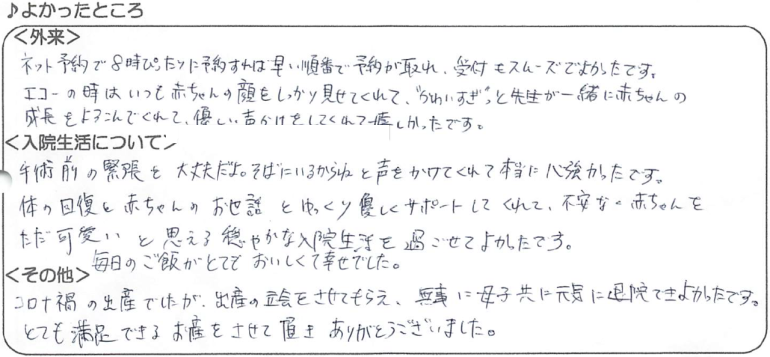 ♪よかったところ
＜外来＞
ネット予約で8時ぴったりに予約すれば早い順番で予約が取れ、受付もスムーズでよかったです。
エコーの時はいつも赤ちゃんの顔をしっかり見せてくれて、"かわいすぎ"っと先生が一緒に赤ちゃんの
成長をよろこんでくれて、優しい声かけをしてくれて嬉しかったです。
＜入院生活について＞
手術前の緊張を大丈夫だよ。そばにいるからねと声をかけてくれて本当に心強かったです。
体の回復と赤ちゃんのお世話とゆっくり優しくサポートしてくれて、不安なく赤ちゃんを
ただ可愛いと思える穏やかな入院生活を過ごせてよかったです。
毎日のご飯がとてもおいしくて幸せでした。
＜その他＞
コロナ禍の出産でしたが、出産の立会をさせてもらえ、無事に母子共に元気に退院できよかったです。
とても満足できるお産をさせて頂きありがとうございました。